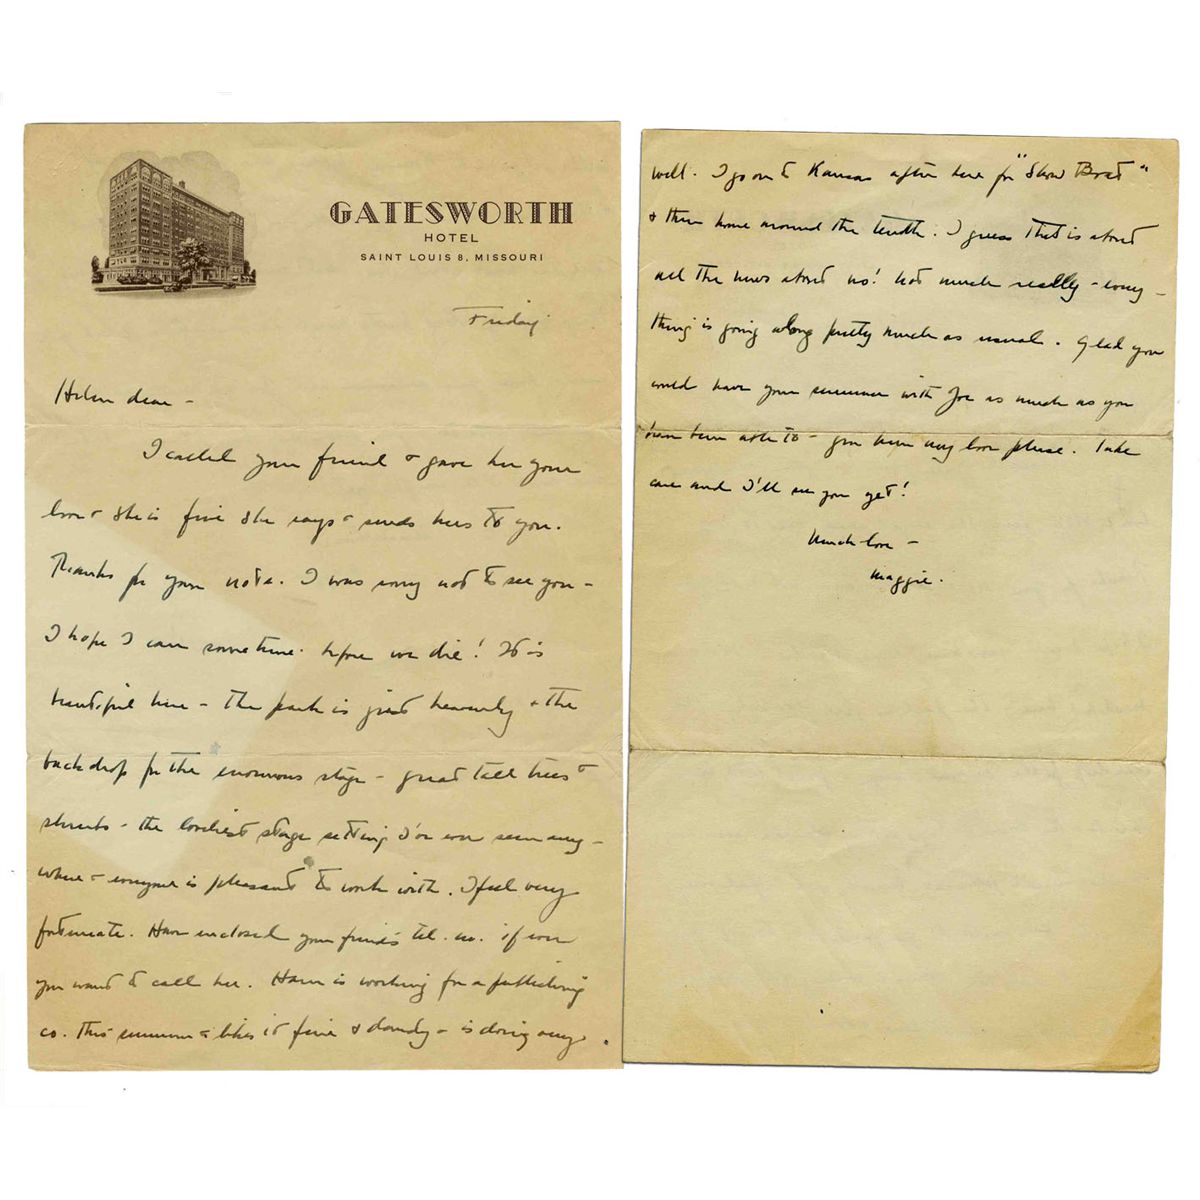 GATESWORTH
HOTEL
SAINT LOUIS 8, MISSOURI
Friday
Helen dear –
I called your friend & gave her your
love & she is fine she says & sends hers to you.
Thanks for your note. I was sorry not to see you –
I hope I can sometime before we die! It is
beautiful here – the park is just heavenly & the
backdrop for the enormous stage – great tall trees &
shrubs – the loveliest stage setting I've ever seen any-
where & everyone is pleasant to work with. I feel very
fortunate. Have enclosed your friend's tel. no. if ever
you want to call her. is working for a publishing
co. this summer & likes it fine & dandy – is doing very
well. I go on to Kansas after here for "Show Boat"
& then home around the tenth. I guess that is about
all the news about us! Not much really – every-
thing is going along pretty much as usual. Glad you
could have your summer with Joe as much as you
have been able to – give him my love please. Take
care and I'll see you yet!
Much love –
Maggie.